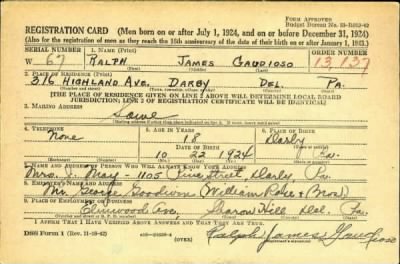 FORM APPROVED
REGISTRATION CARD—(Men born on or after July 1, 1924, and on or before December 31, 1924)
(Also for the registration of men as they reach the 18th anniversary of the date of their birth on or after January 1, 1943.)
SERIAL NUMBER 1. NAME (Print) ORDER NUMBER
W 67 RALPH JAMES GAUDIOSO 13,137
(First) (Middle) (Last)
2. PLACE OF RESIDENCE (Print)
316 HIGHLAND AVE. DARBY DEL. PA.
[THE PLACE OF RESIDENCE GIVEN ON LINE 2 ABOVE WILL DETERMINE LOCAL BOARD
JURISDICTION; LINE 2 OF REGISTRATION CERTIFICATE WILL BE IDENTICAL]
3. MAILING ADDRESS
Same
4. TELEPHONE 5. AGE IN YEARS 6. PLACE OF BIRTH
None 18 Darby
DATE OF BIRTH
10 22 1924 Pa.
7. NAME AND ADDRESS OF PERSON WHO WILL ALWAYS KNOW YOUR ADDRESS
Mrs. J. May - 1105 Pine street Darby Pa.
8. EMPLOYER'S NAME AND ADDRESS
Mr. George Goodwin (William &
9. PLACE OF EMPLOYMENT OR BUSINESS
Elmwood Ave. Sharon Hill Del. Pa.
I AFFIRM THAT I HAVE VERIFIED ABOVE ANSWERS AND THAT THEY ARE TRUE.
DSS Form 1 (Rev. 11-16-42) (OVER) Ralph James Gaudioso